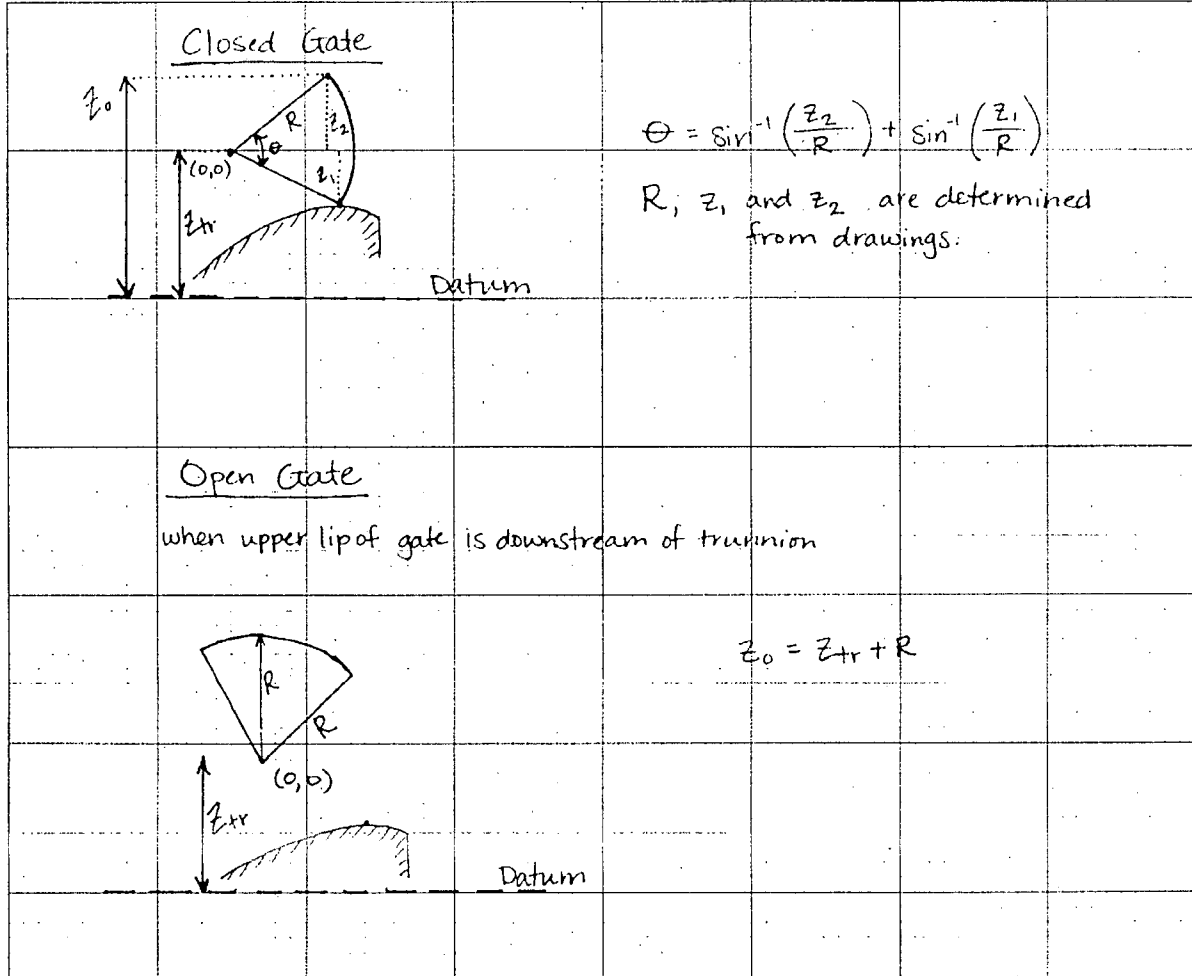 Closed Gate
z₀
R
z₂
θ
(0,0)
z₁
z_tr
Datum
θ = sin⁻¹(z₂/R) + sin⁻¹(z₁/R)
R, z₁ and z₂ are determined
from drawings.
Open Gate
when upper lip of gate is downstream of trunnion
R
R
(0,0)
z_tr
Datum
z₀ = z_tr + R